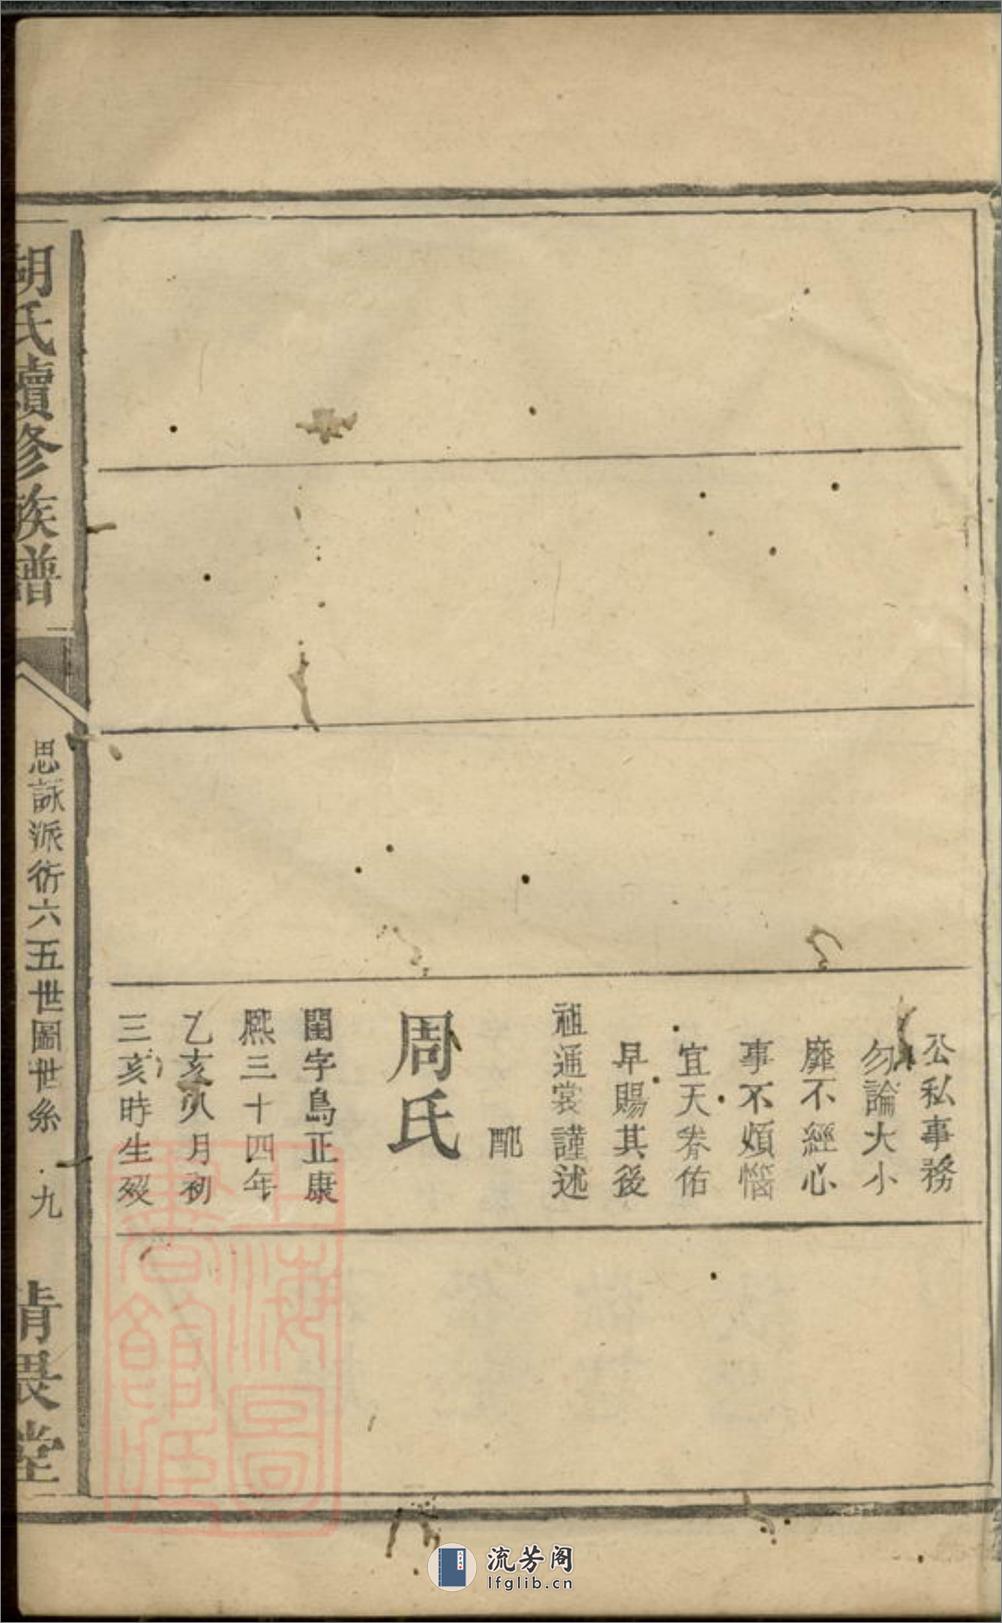 公私事務
勿論大小
靡不經心
事不煩惱
宜天眷佑
早賜其後
祖通裳謹述
配
周氏
閨字鳥正康
熙三十四年
乙亥八月初
三亥時生歿
胡氏續修族譜
思詠派衍六五世圖世系
九
清畏堂
上海圖書館藏
流芳阁
lfglib.cn